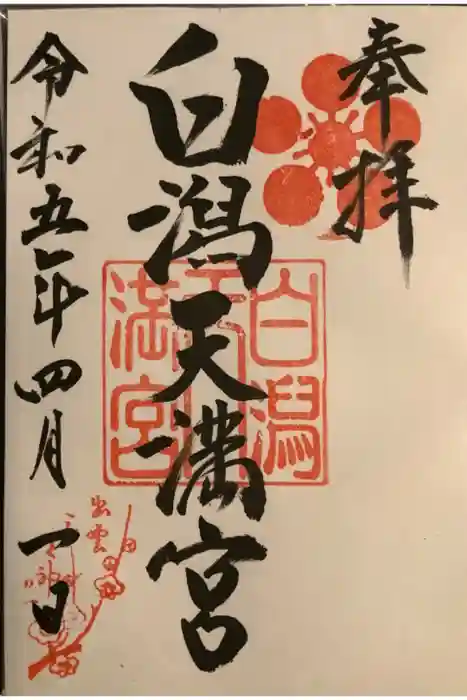 奉拝
白潟天満宮
令和五年四月一日
白潟天満宮
出雲